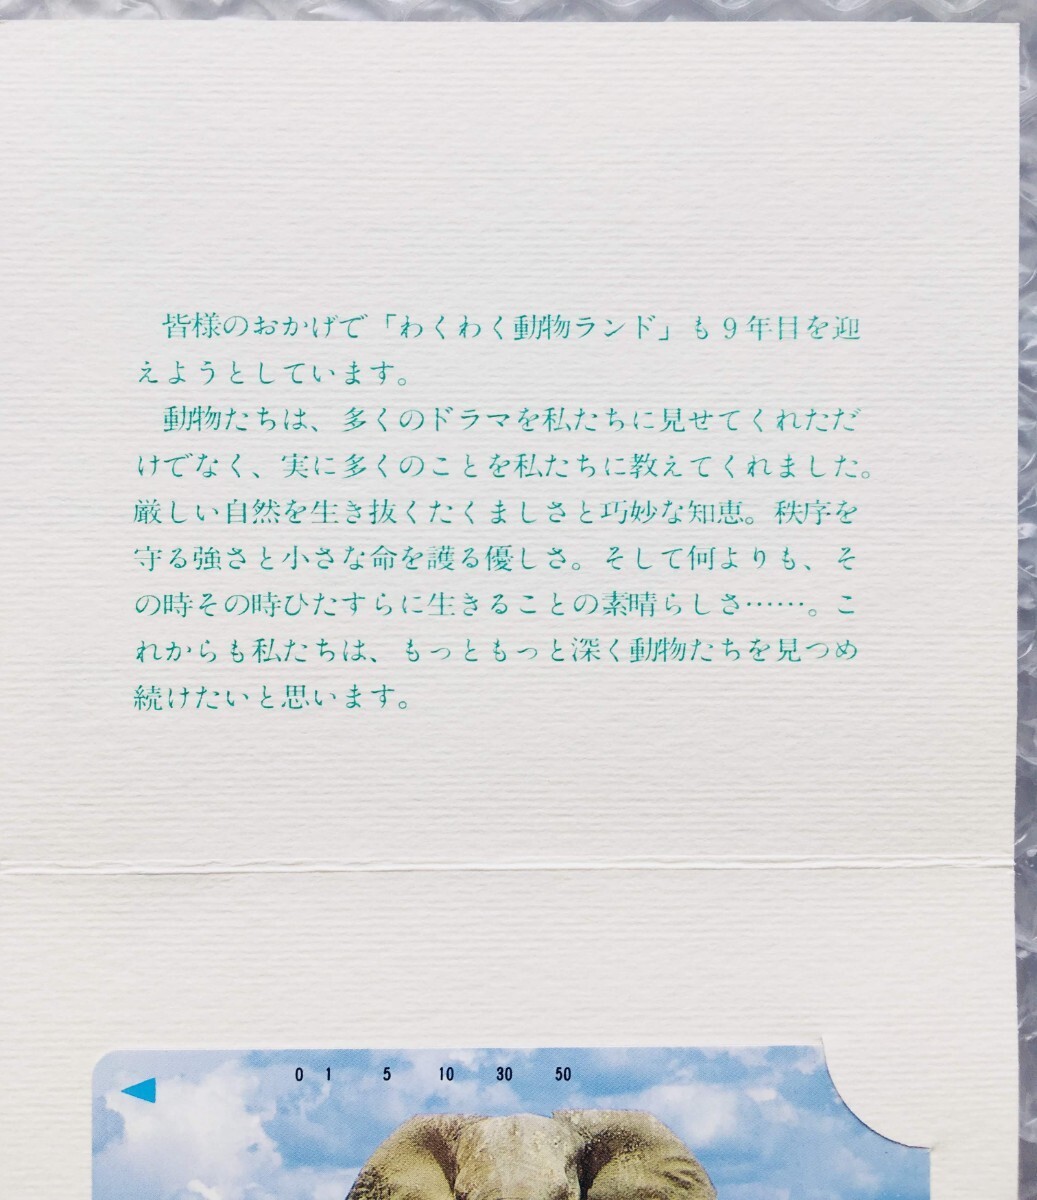 皆様のおかげで「わくわく動物ランド」も９年目を迎
えようとしています。
動物たちは、多くのドラマを私たちに見せてくれただ
けでなく、実に多くのことを私たちに教えてくれました。
厳しい自然を生き抜くたくましさと巧妙な知恵。秩序を
守る強さと小さな命を護る優しさ。そして何よりも、そ
の時その時ひたすらに生きることの素晴らしさ……。こ
れからも私たちは、もっともっと深く動物たちを見つめ
続けたいと思います。
0 1 5 10 30 50